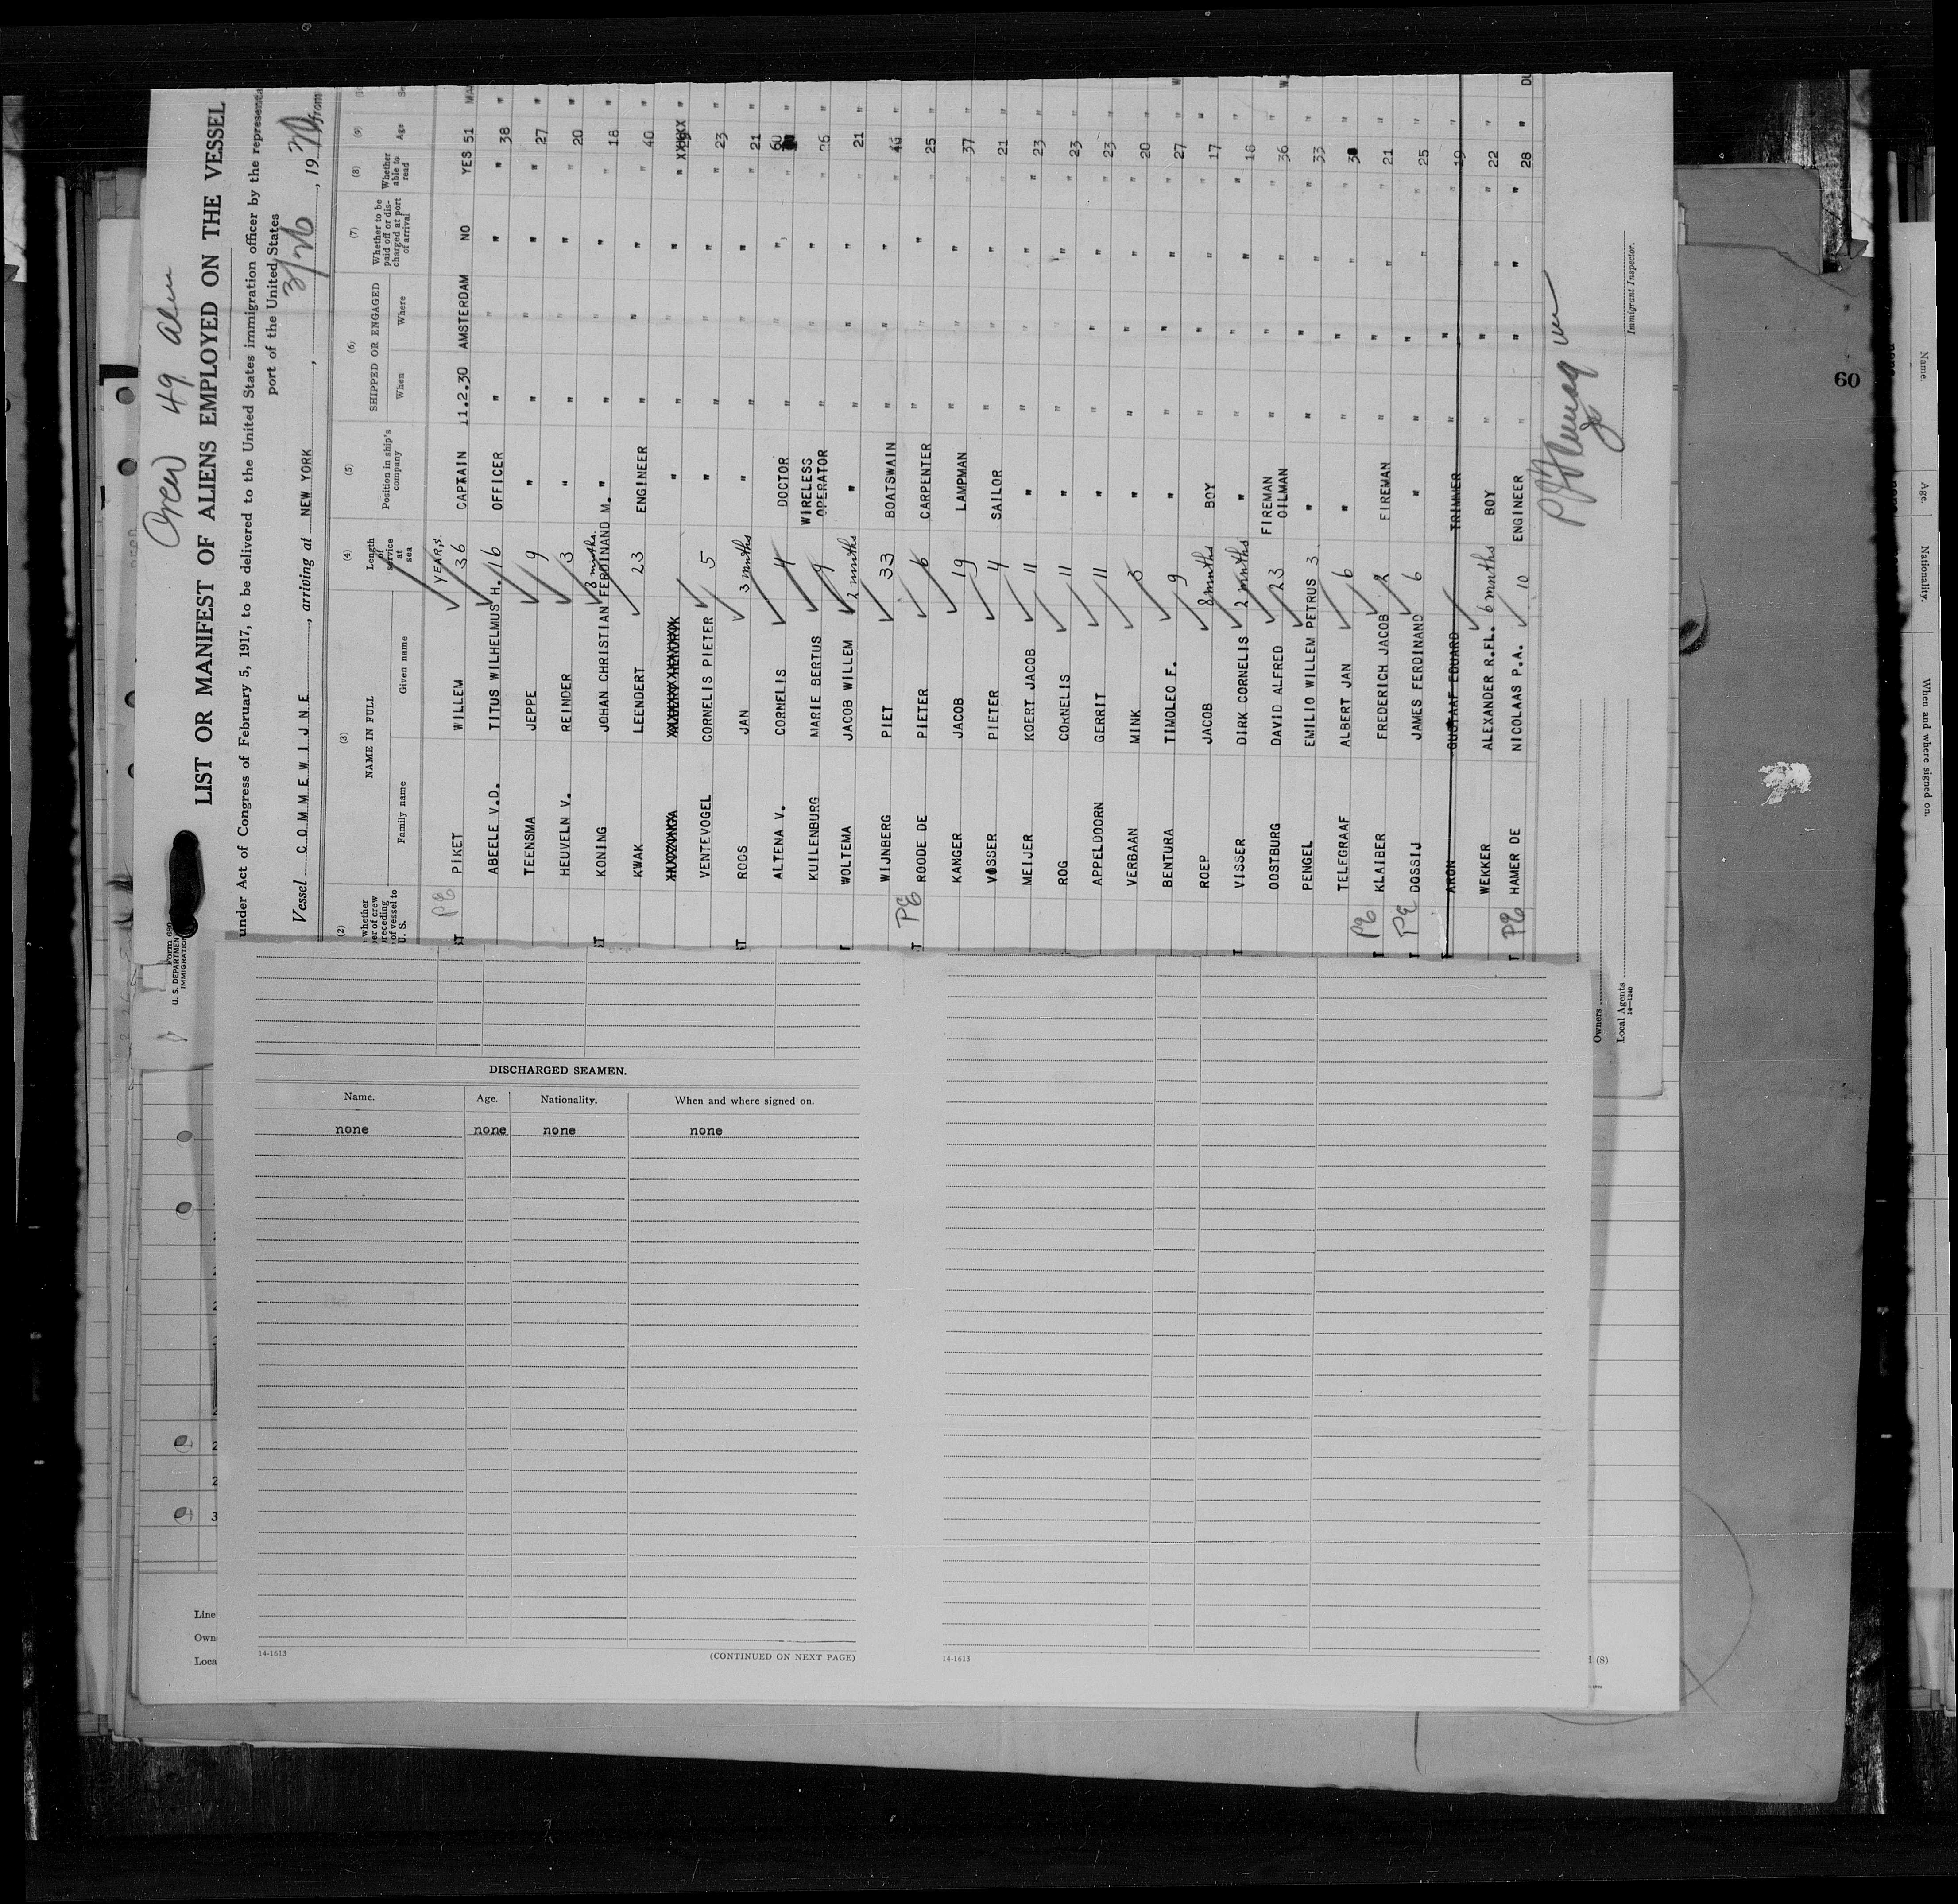 Crew 49 alien
LIST OR MANIFEST OF ALIENS EMPLOYED ON THE VESSEL
under Act of Congress of February 5, 1917, to be delivered to the United States immigration officer by the representa
port of the United States
Vessel COMMEWIJNE, arriving at NEW YORK, 3/26, 19 from
(2) (3) (4) (5) (6) (7) (8) (9)
whether er of crew receding of vessel to U. S. NAME IN FULL Length of service at sea Position in ship's company SHIPPED OR ENGAGED Whether to be paid off or discharged at port of arrival Whether able to read Age Se
Family name Given name When Where
YEARS.
PE PIKET WILLEM 36 CAPTAIN 11.2.30 AMSTERDAM NO YES 51 MA
ABEELE V.D. TITUS WILHELMUS H. 16 OFFICER " " " " 38 "
TEENSMA JEPPE 9 " " " " " 27 "
HEUVELN V. REINDER 3 " " " " " 20 "
KONING JOHAN CHRISTIAN FERDINAND M. 8 mnths. " " " " " 18 "
KWAK LEENDERT 23 ENGINEER " " " " 40 "
" " " " " "
VENTEVOGEL CORNELIS PIETER 5 " " " " " 23 "
ROOS JAN 3 mnths " " " " " 21 "
ALTENA V. CORNELIS 4 DOCTOR " " " " 60 "
KUILENBURG MARIE BERTUS 9 WIRELESS OPERATOR " " " " 26 "
WOLTEMA JACOB WILLEM 2 mnths " " " " " 21 "
WIJNBERG PIET 33 BOATSWAIN " " " " 46 "
PE ROODE DE PIETER 6 CARPENTER " " " " 25 "
KANGER JACOB 19 LAMPMAN " " " " 37 "
VOSSER PIETER 4 SAILOR " " " " 21 "
MEIJER KOERT JACOB 11 " " " " " 23 "
ROG CORNELIS 11 " " " " " 23 "
APPELDOORN GERRIT 11 " " " " " 23 "
VERBAAN MINK 3 " " " " " 20 "
BENTURA TIMOLEO F. 9 " " " " " 27 " W
ROEP JACOB 8 mnths BOY " " " " 17 "
VISSER DIRK CORNELIS 2 mnths " " " " " 18 "
OOSTBURG DAVID ALFRED 23 FIREMAN OILMAN " " " " 36 " W.
PENGEL EMILIO WILLEM PETRUS 3 " " " " " 33 "
TELEGRAAF ALBERT JAN 6 " " " " " "
PE KLAIBER FREDERICH JACOB 2 FIREMAN " " " " 21 "
PE DOSSIJ JAMES FERDINAND 6 " " " " " 25 "
ARON GUSTAAF EDUARD TRIMMER " " " " 19 "
WEKKER ALEXANDER R.FL. 6 mnths BOY " " " " 22 "
PE HAMER DE NICOLAS P.A. 10 ENGINEER " " " " 28 " DU
Immigrant Inspector.
Owners
Local Agents
14—1240
Form 680
U. S. DEPARTMENT
IMMIGRATION
DISCHARGED SEAMEN.
Name. Age. Nationality. When and where signed on.
none none none none
14-1613 (CONTINUED ON NEXT PAGE)
14-1613
Line
Own
Loca
(S)
60
Name. Age. Nationality. When and where signed on.